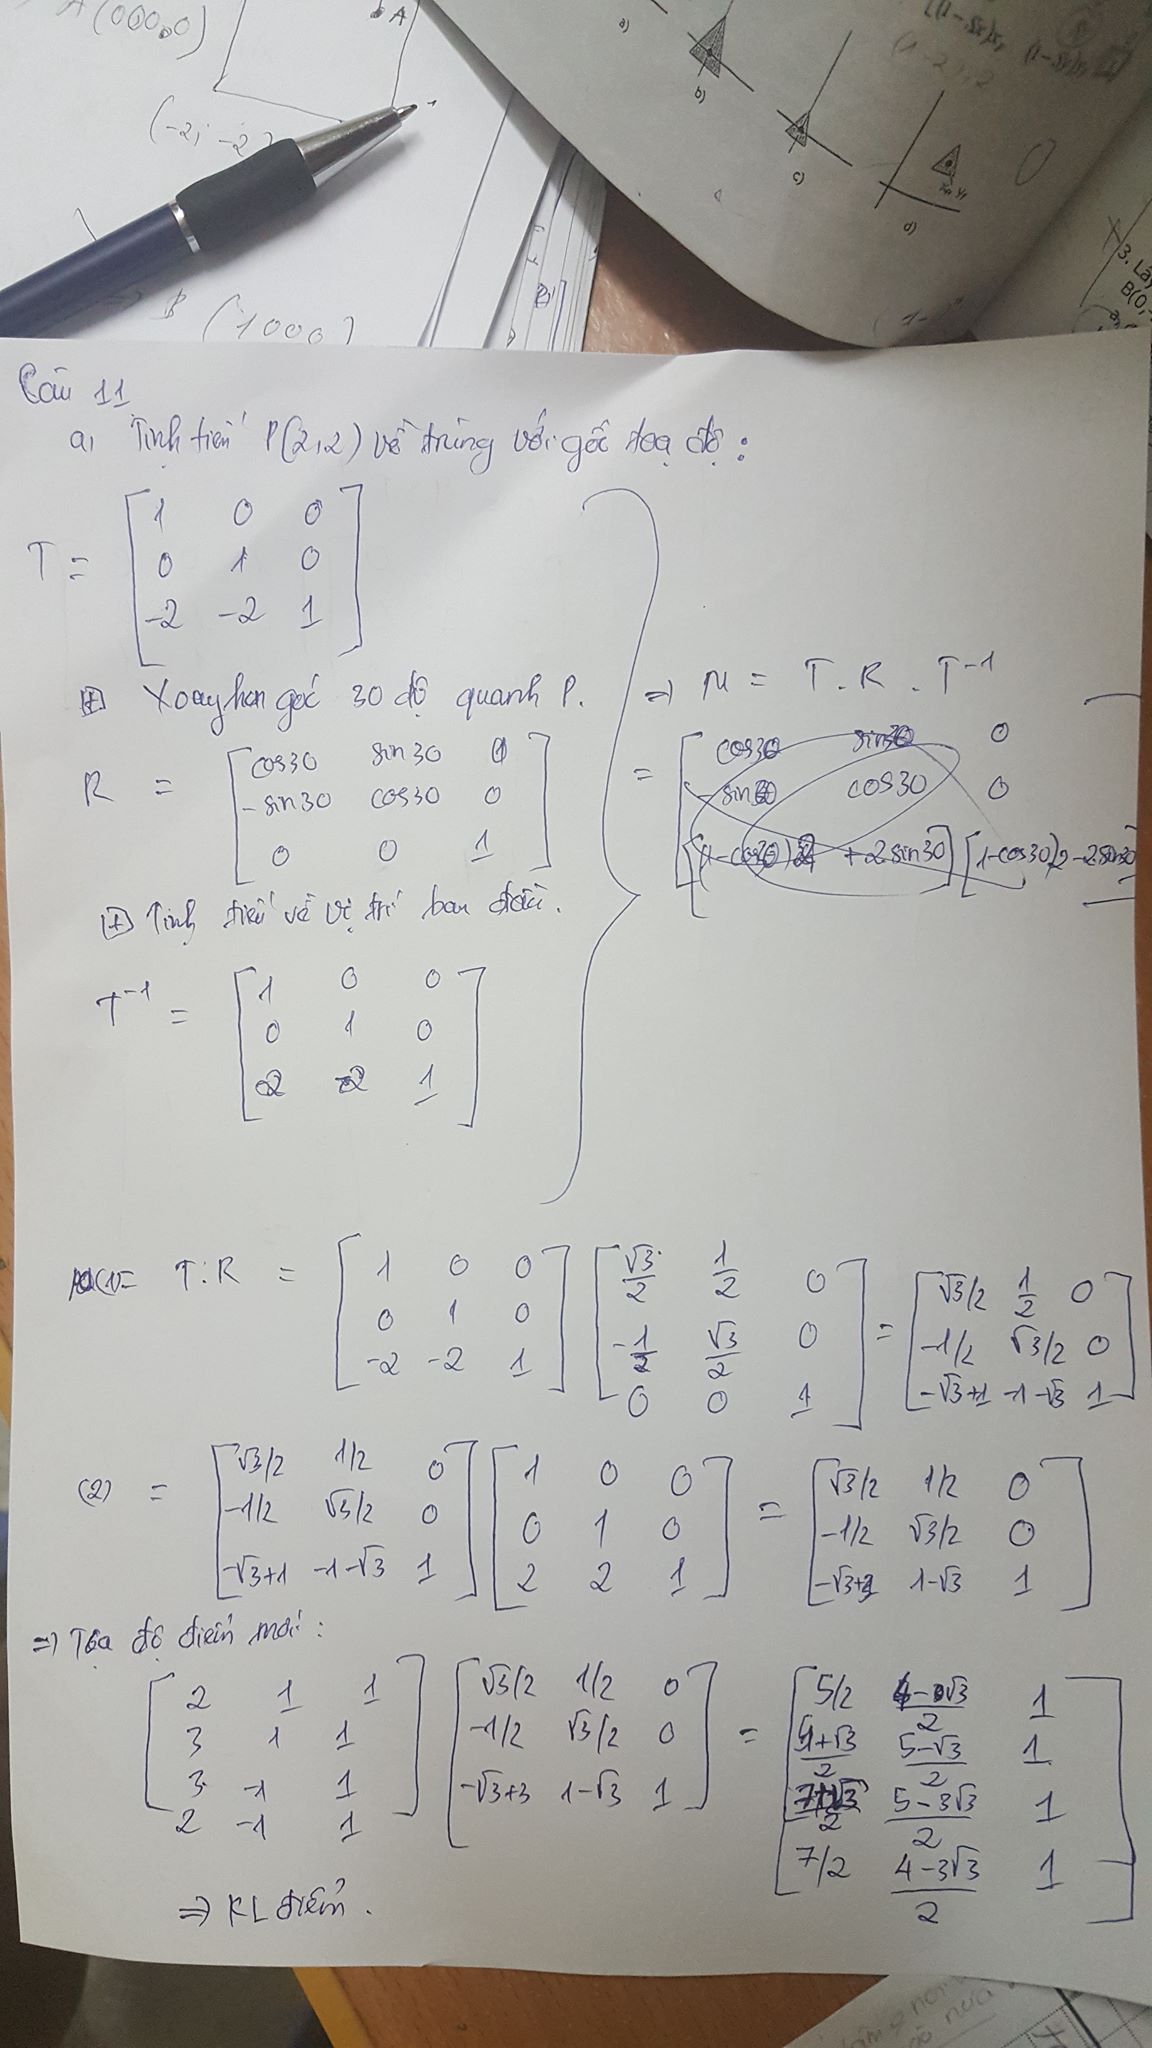 A(00,0)
A
(-2; -2)
B (1000)
a)
b)
c)
d)
3. Lấy
B(0,
Câu 11
a, Tịnh tiến P(2,2) về trùng với gốc toạ độ:
T = [1 0 0
0 1 0
-2 -2 1]
+ Xoay hơn góc 30 độ quanh P.
R = [cos30 sin30 0
-sin30 cos30 0
0 0 1]
+ Tịnh tiến về vị trí ban đầu.
T⁻¹ = [1 0 0
0 1 0
2 2 1]
=> M = T.R.T⁻¹
= [cos30 sin30 0
-sin30 cos30 0
(1-cos30)2 +2sin30] [1-cos30)2-2sin30
(1) = T.R = [1 0 0
0 1 0
-2 -2 1] [√3/2 1/2 0
-1/2 √3/2 0
0 0 1] = [√3/2 1/2 0
-1/2 √3/2 0
-√3+1 -1-√3 1]
(2) = [√3/2 1/2 0
-1/2 √3/2 0
-√3+1 -1-√3 1] [1 0 0
0 1 0
2 2 1] = [√3/2 1/2 0
-1/2 √3/2 0
-√3+3 1-√3 1]
=> Tọa độ điểm mới:
[2 1 1
3 1 1
3 -1 1
2 -1 1] [√3/2 1/2 0
-1/2 √3/2 0
-√3+3 1-√3 1] = [5/2 4-√3/2 1
5+√3/2 5-√3/2 1
5-3√3/2 1
7/2 4-3√3/2 1]
=> KL điểm.